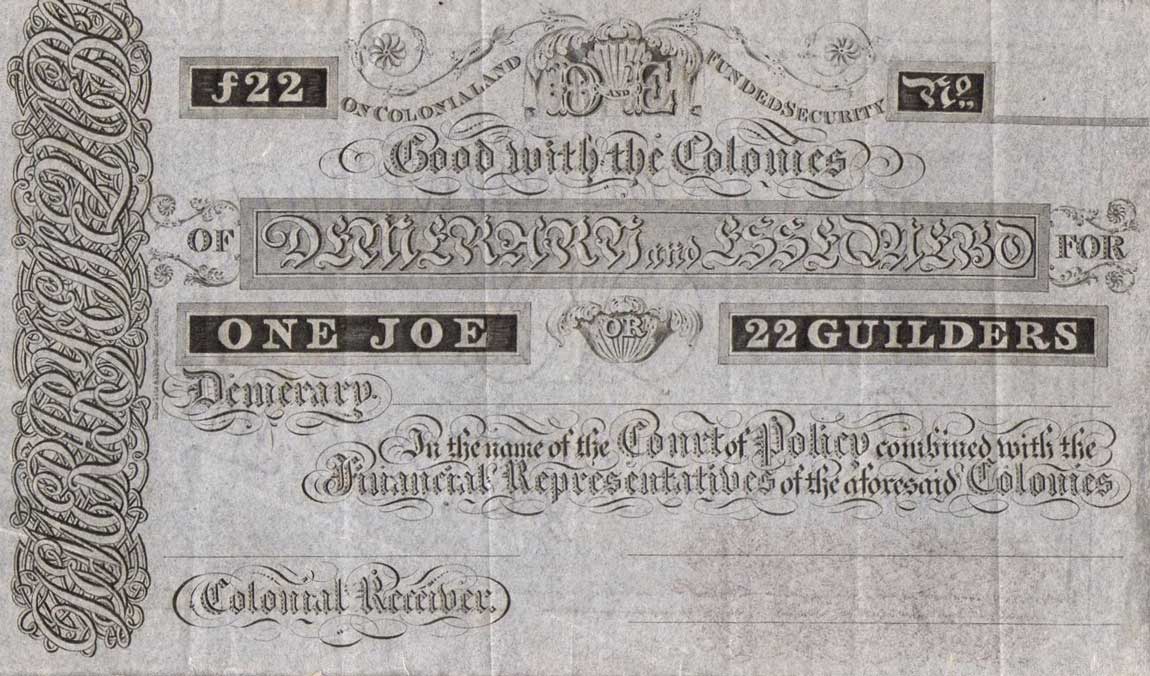 ƒ22 ON COLONIAL AND D AND E FUNDED SECURITY Nº
Good with the Colonies
OF DEMERARY and ESSEQUEBO FOR
ONE JOE OR 22 GUILDERS
Demerary.
In the name of the Court of Policy combined with the
Financial Representatives of the aforesaid Colonies
Colonial Receiver.